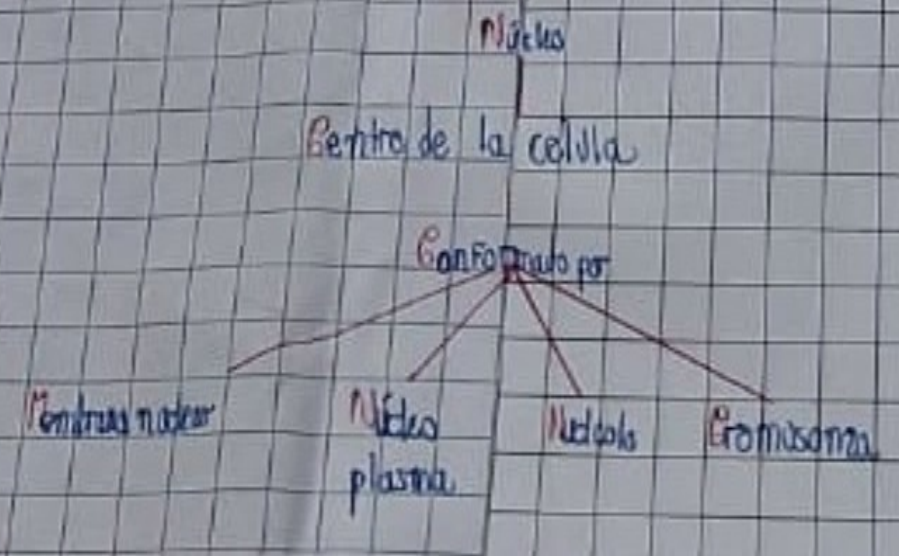 Núcleo
Centro de la celula
Conformado por
Membrana nuclear
Núcleo
plasma
Nucleolo
Cromosoma